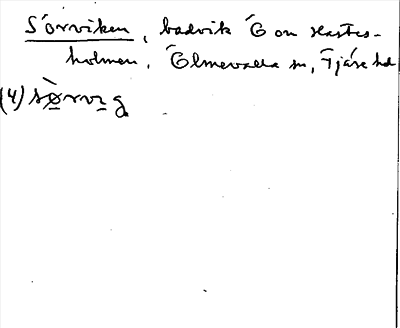 Sörviken, badvik Ö om Hästes-
holmen, Ölmevalla sn, Fjäre hd
(4) sø̀rvɪg